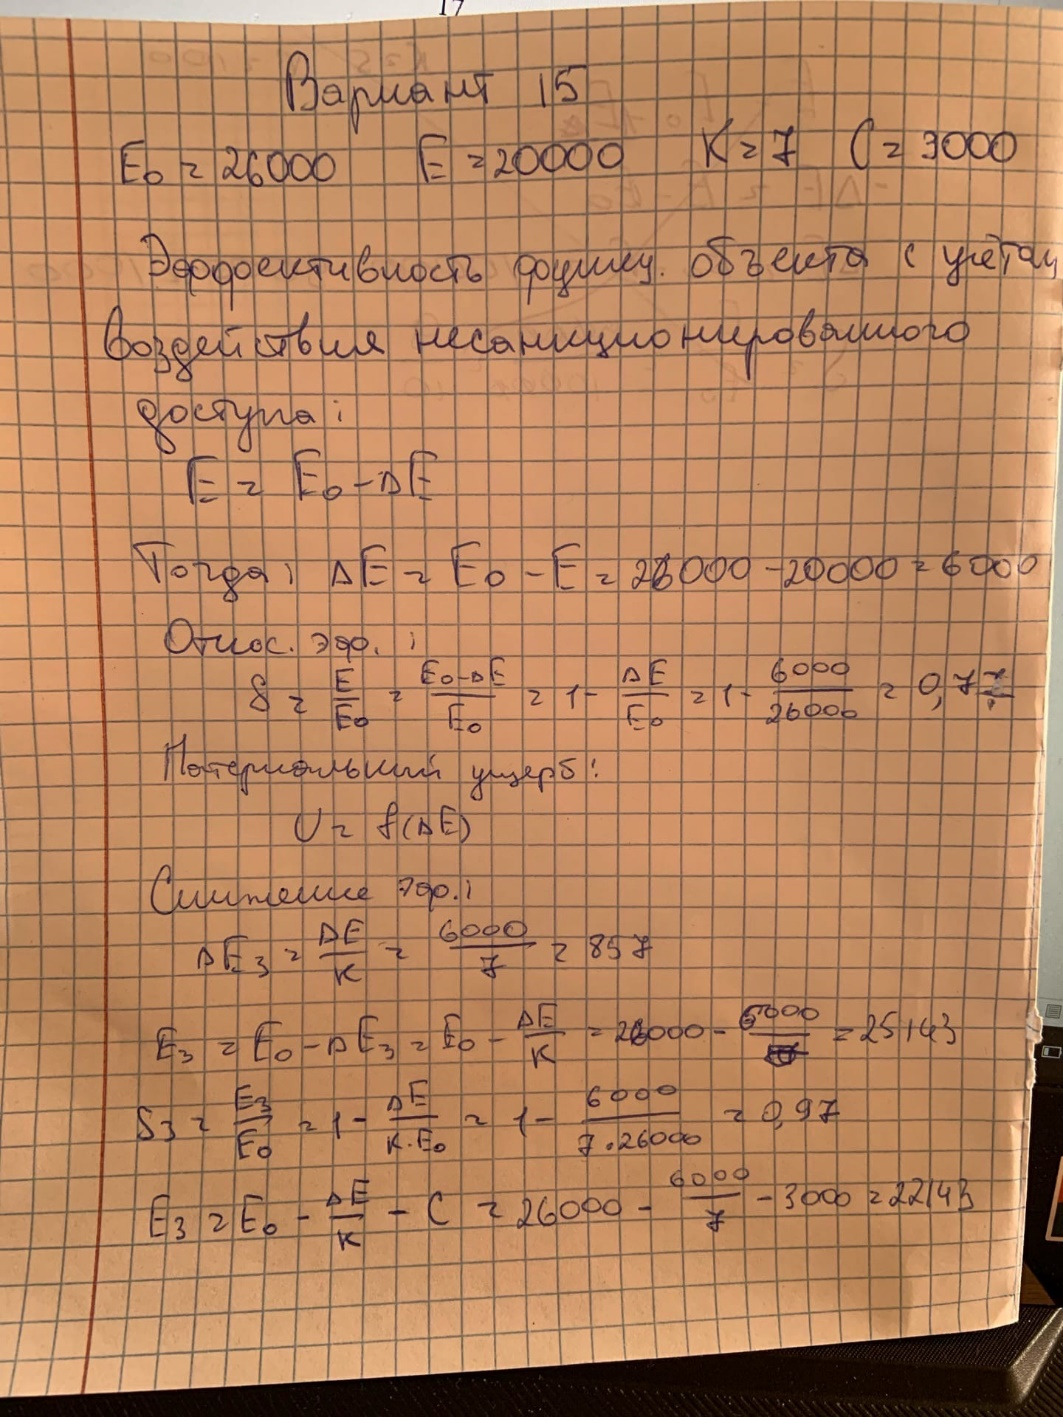 17
Вариант 15
E₀ = 26000 E = 20000 K = 7 C = 3000
Эффективность функц. объекта с учётом
воздействия несанкционированного
доступа:
E = E₀ - ΔE
Тогда: ΔE = E₀ - E = 26000 - 20000 = 6000
Относ. эфф.:
δ = E/E₀ = (E₀-ΔE)/E₀ = 1 - ΔE/E₀ = 1 - 6000/26000 = 0,77
Материальный ущерб:
U = f(ΔE)
Снижение эфф.:
ΔE₃ = ΔE/K = 6000/7 = 857
E₃ = E₀ - ΔE₃ = E₀ - ΔE/K = 26000 - 6000/ = 25143
δ₃ = E₃/E₀ = 1 - ΔE/(K·E₀) = 1 - 6000/(7·26000) = 0,97
E₃ = E₀ - ΔE/K - C = 26000 - 6000/7 - 3000 = 22143